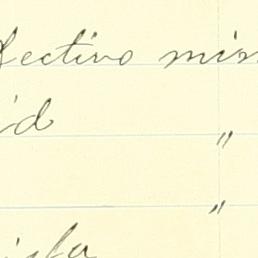 fectivo min
id "
"
ista